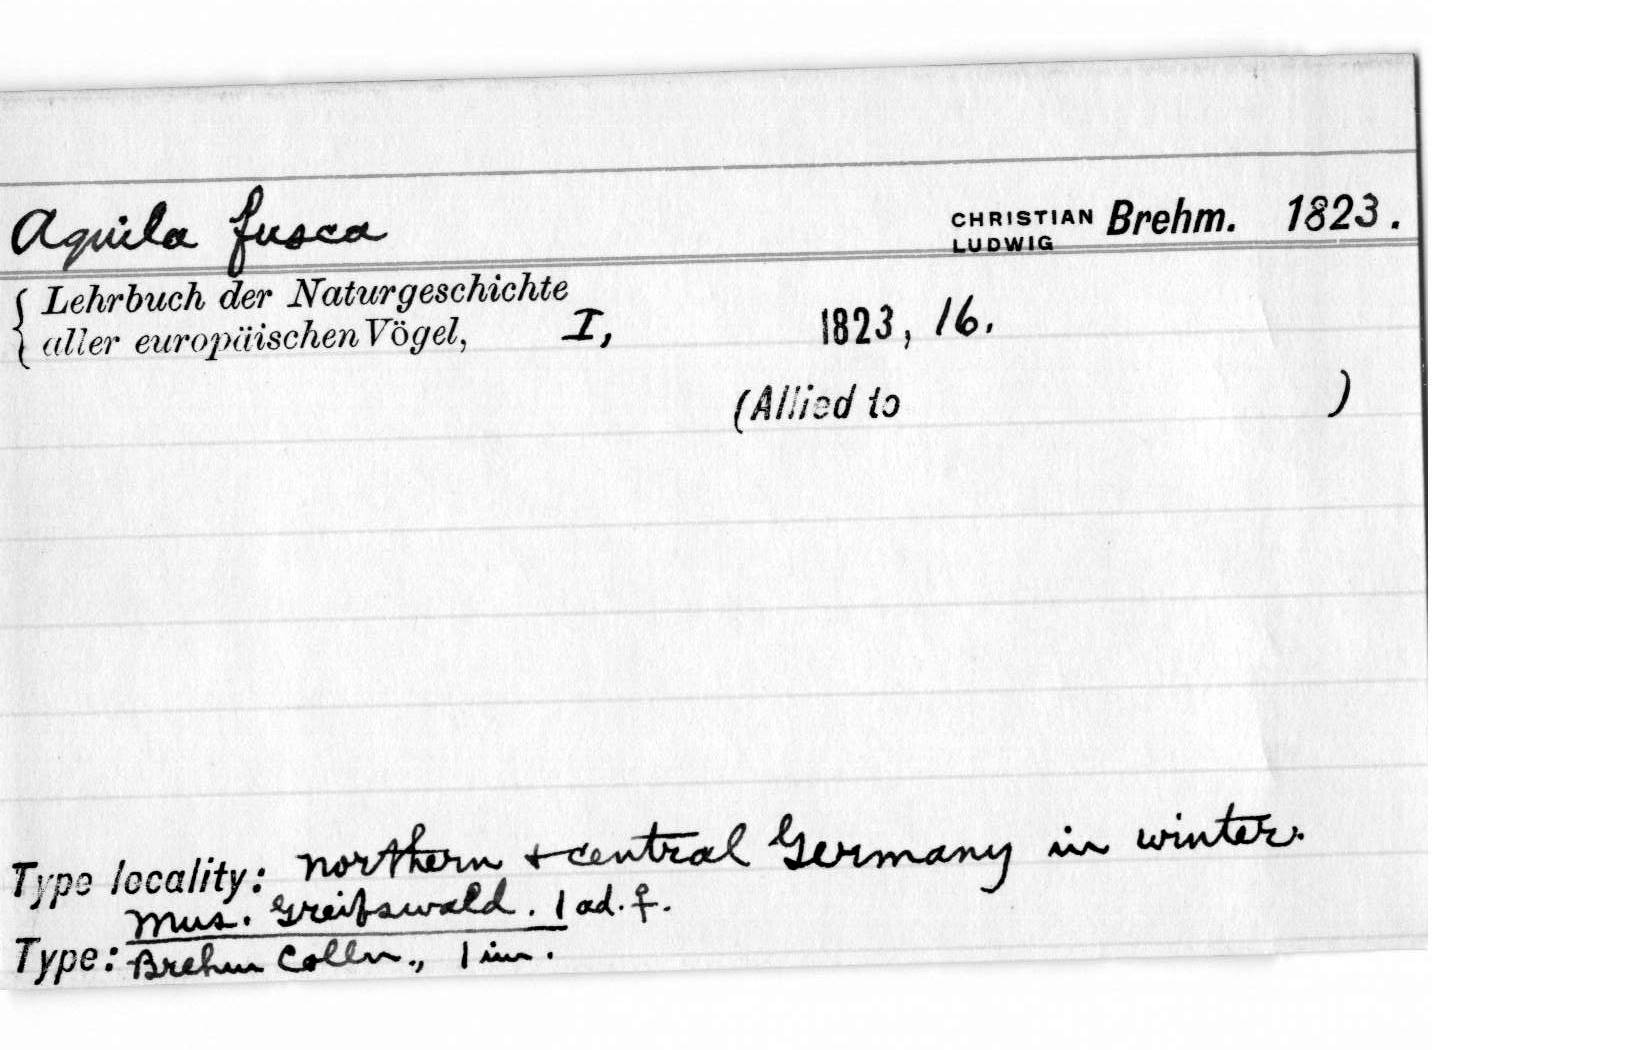 Aquila fusca CHRISTIAN LUDWIG Brehm. 1823.
Lehrbuch der Naturgeschichte
aller europäischen Vögel, I, 1823, 16.
(Allied to )
Type locality: northern + central Germany in winter.
Mus. Greifswald. 1 ad. ♀.
Type: Brehm Colln., 1 im.